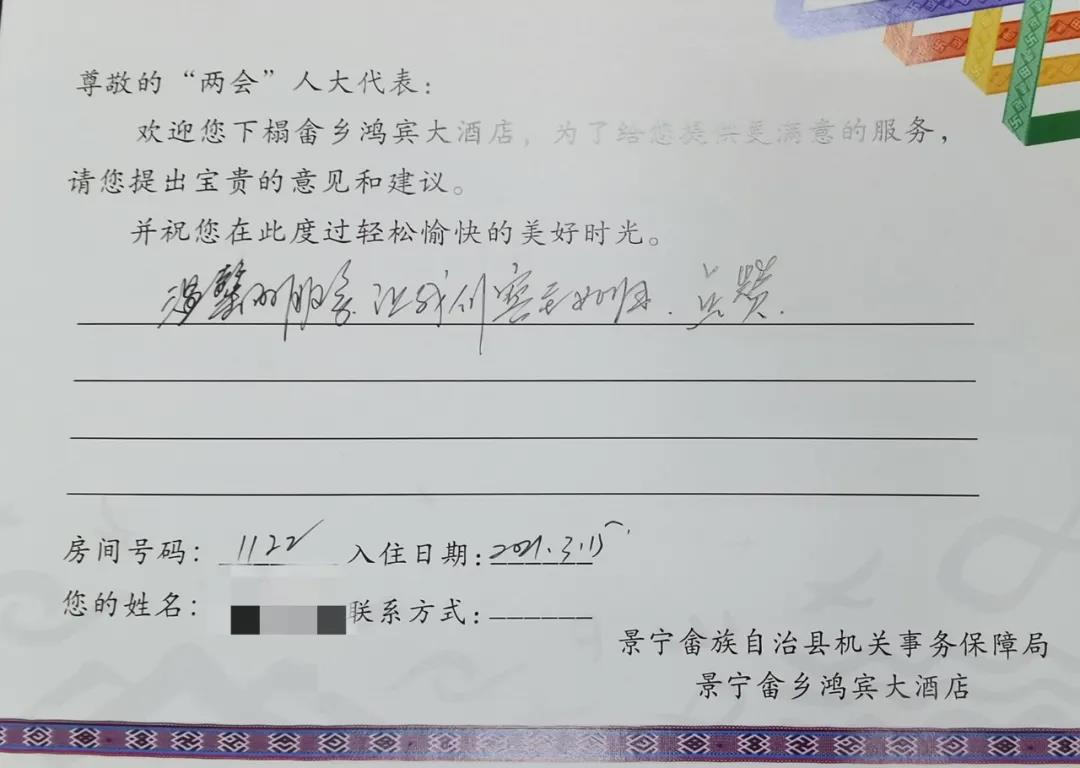 尊敬的“两会”人大代表：
欢迎您下榻畲乡鸿宾大酒店，为了给您提供更满意的服务，
请您提出宝贵的意见和建议。
并祝您在此度过轻松愉快的美好时光。
温馨的服务让我们宾至如归.点赞.
房间号码：1122 入住日期：2021.3.15
您的姓名： 联系方式：
景宁畲族自治县机关事务保障局
景宁畲乡鸿宾大酒店